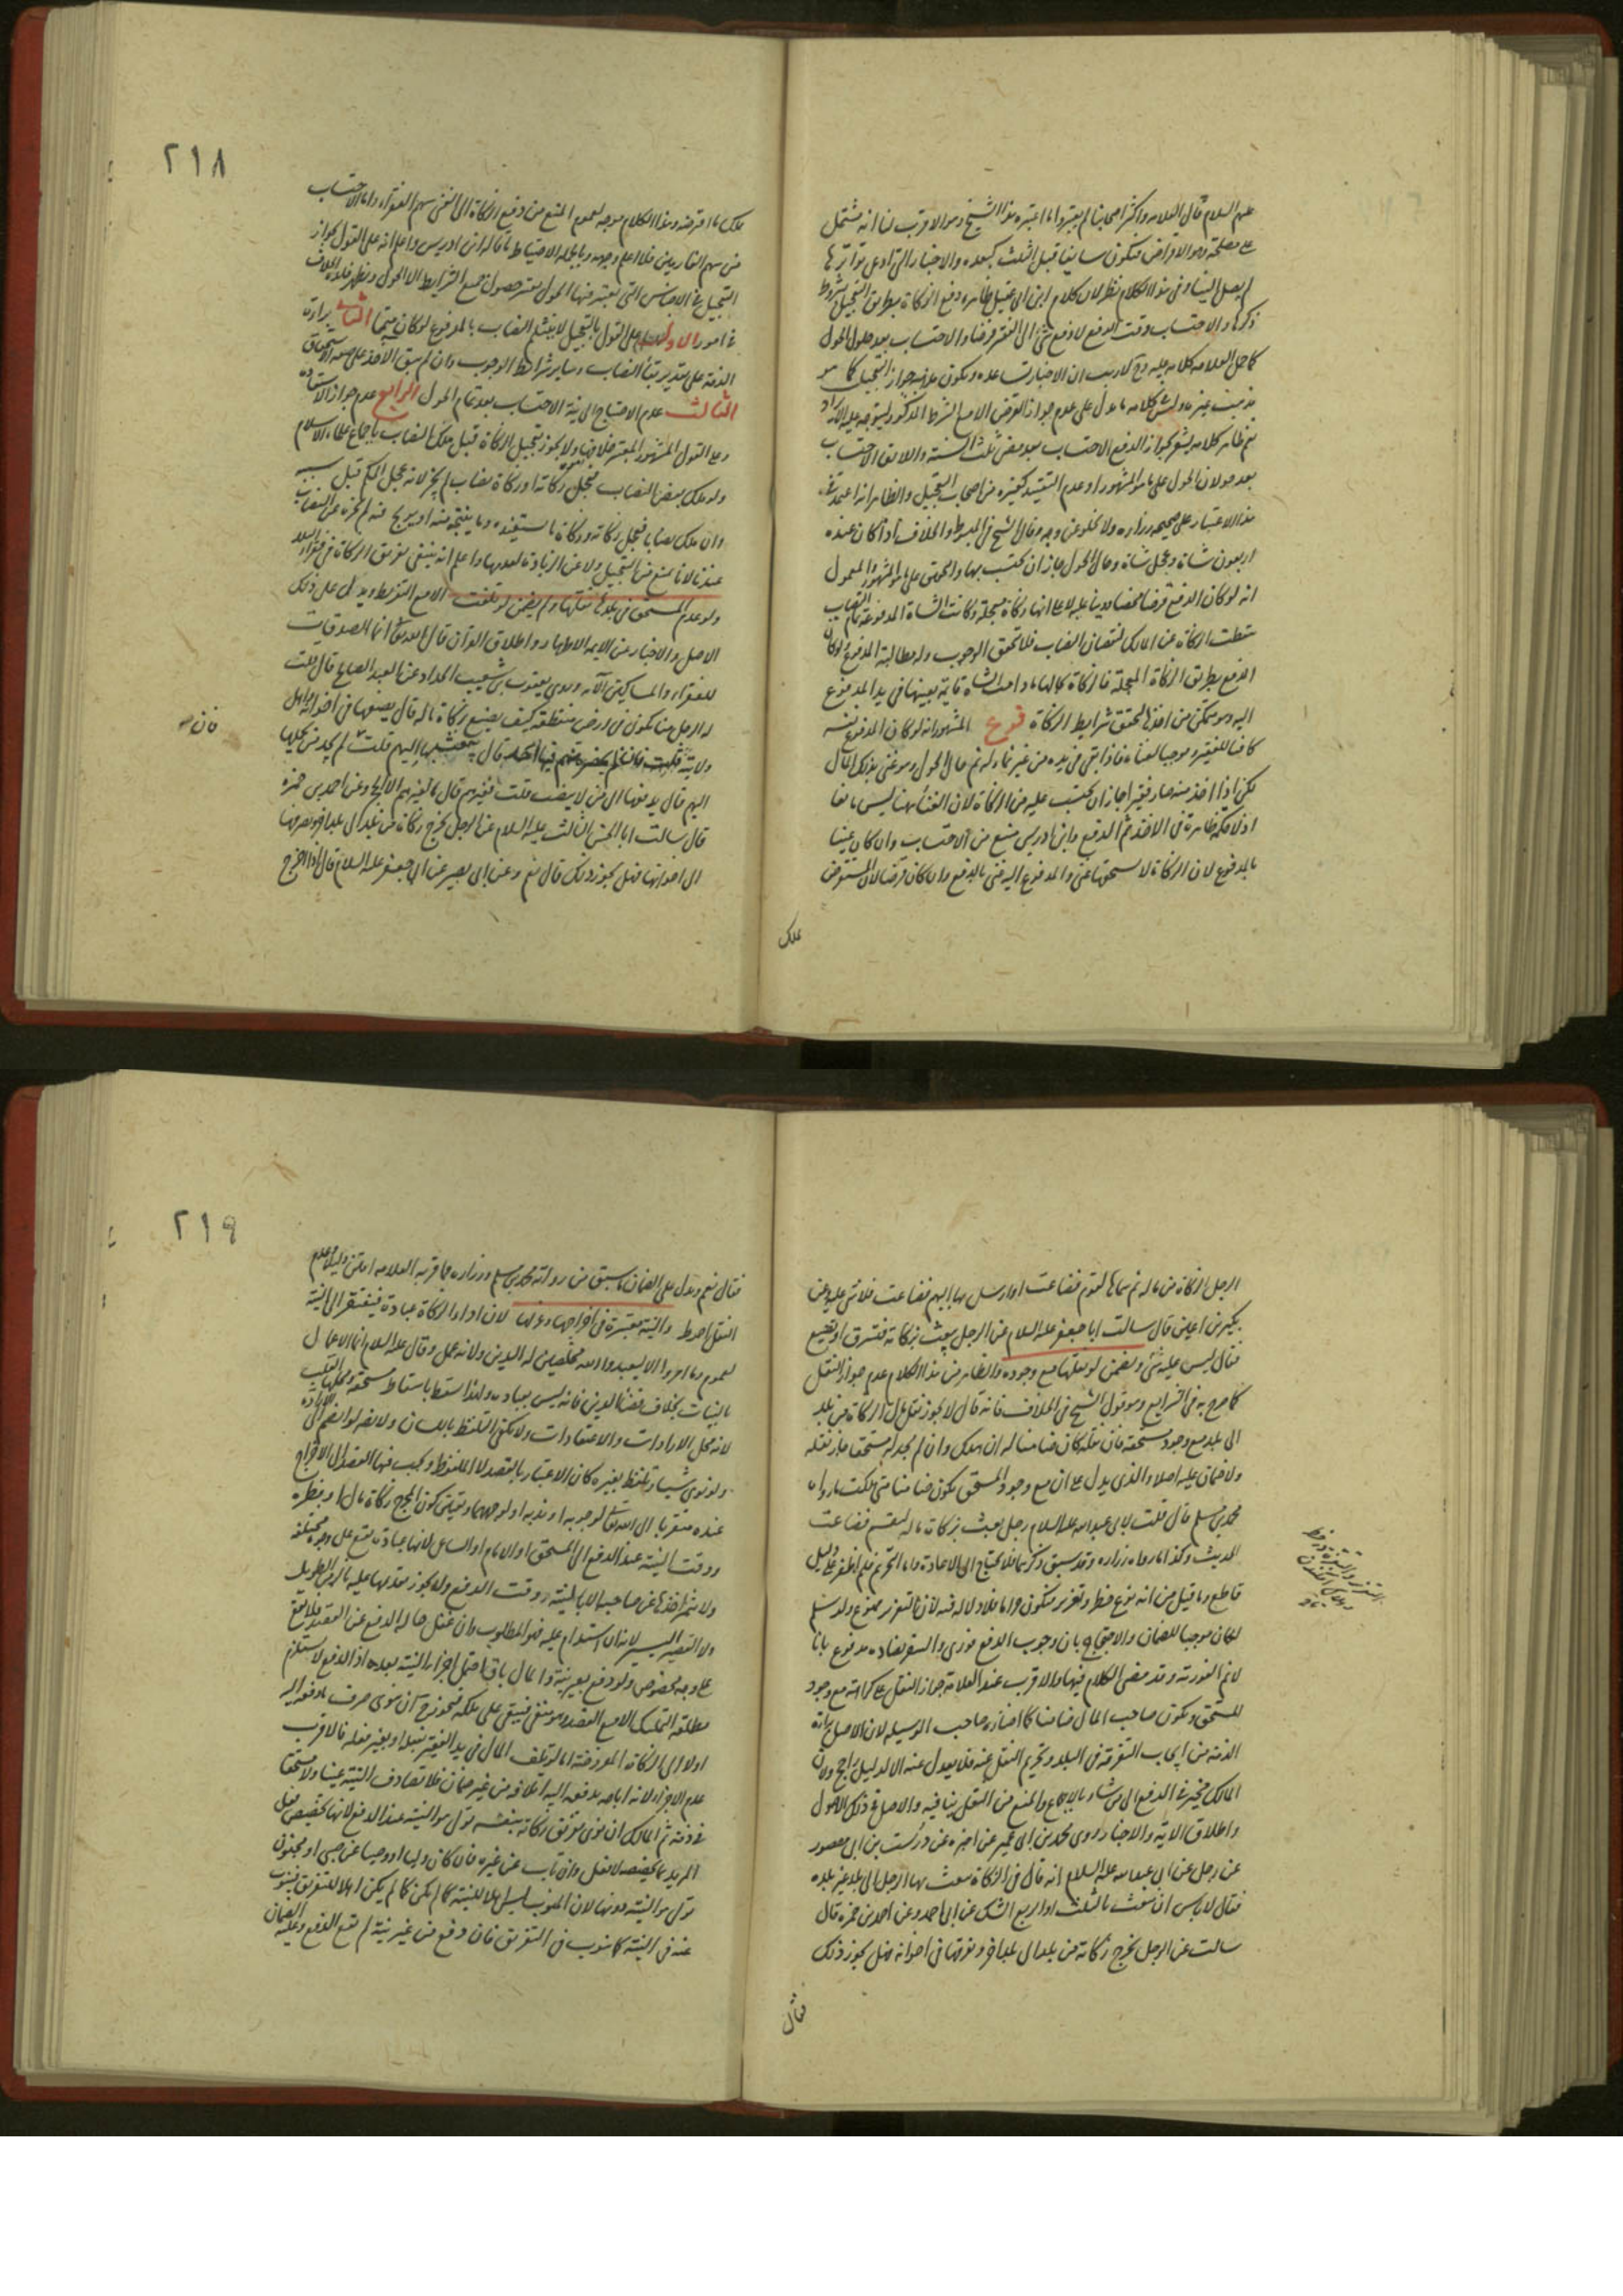 عليهم السلام قال العلامه واكثر اصحابنا لم يعتبروا ما اعتبره هذا الشيخ وهو الاقرب لنا انه مشتمل
على مصلحة وهو الاقراض فيكون سايغا قبل الثلث كبعده والاخبار التي ادعى تواترها
لم يصل الينا وفي هذا الكلام نظر لان كلام ابن ابي عقيل ظاهره دفع الزكاة بطريق التعجيل بشروط
ذكرها والاحتساب وقت الدفع لا دفع شئ الى الفقير قرضا والاحتساب بعد حلول الحول
كما حمل العلامه كلامه عليه وح لا ريب ان الاخبار تساعده ويكون عنده جواز التعجيل كما هو
مذهب غيره وليس في كلامه ما يدل على عدم جواز القرض الا مع الشرط المذكور ليتوجه عليه الايراد
نعم ظاهر كلامه يشعر بجواز الدفع الاحتساب بعد مضي ثلث السنة واللايق الاحتساب
بعد حولان الحول على ما هو المشهور او عدم التقييد كغيره من اصحاب التعجيل والظاهر انه اعتمد في
هذا الاعتبار على صحيحه زراره ولا يخلو عن وجه وقال الشيخ في المبسوط والخلاف اذا كان عنده
اربعون شاة وعجل شاة وحال الحول جاز ان يحتسب بها والحق على ما هو المشهور والمعمول
انه لو كان الدفع قرضا محضا دينا عليه لا على انها زكاة معجلة وكانت الشاة المدفوعة تمام النصاب
سقطت الزكاة عن المالك لنقصان النصاب فلا تحقق الوجوب وله مطالبة المدفوع ولو كان
الدفع بطريق الزكاة المعجلة فالزكاة بحالها ما دامت الشاة قاية بعينها في يد المدفوع
اليه وهو ممكن من اخذها لتحقق شرايط الزكاة فروع المشهور انه لو كان المدفوع بنفسه
كافيا للفقير وموجبا لغناه فاذا بقي في يده من غير نماء له ثم حال الحول وهو غني بذلك المال
لكن اذا اخذ منه صار فقيرا جاز ان يحتسب عليه من الزكاة لان الغنا هنا ليس مانعا
اذ لا حكمة ظاهرة في الاخذ ثم الدفع وابن ادريس منع من الاحتساب وان كان غنيا
بالمدفوع لان الزكاة لا يستحقها غني والمدفوع اليه غني بالدفع وان كان قرضا لان المستقرض
يملك
٢١٨
ملك ما اقترضه وهذا الكلام موجه لعموم المنع من دفع الزكاة الى الغني سهم الفقراء واما الاحتساب
من سهم الغارمين فلا اعلم وجهه وبالجمله الاحتياط ما قاله ابن ادريس واعلم انه على القول بجواز
التعجيل في الاجناس التي يعتبر فيها الحول يعتبر حصول جميع الشرايط الا الحول ويظهر فايدة الخلاف
في امور الاول على القول بالتعجيل لا ينثلم النصاب بالمدفوع لو كان متمما الثاني براءة
الذمة على تقدير بقاء النصاب وساير شرايط الوجوب وان لم يبق الاخذ على صفة الاستحقاق
الثالث عدم الاحتياج الى نية الاحتساب بعد تمام الحول الرابع عدم جواز الاستعاده
وعلى القول المشهور المعتبر خلافها ولا يجوز تعجيل الزكاة قبل ملك النصاب باجماع علماء الاسلام
ولو ملك بعض النصاب فعجل زكاته او زكاة نصاب لم يجز لانه عجل الحكم قبل سببه
وان ملك نصابا فعجل زكاته وزكاة ما يستفيده وما ينتجه منه او يربح فيه لم يجزه عن النصاب
عندنا لانا نمنع من التعجيل ولا عن الزيادة لعدمها واعلم انه ينبغي تفريق الزكاة في فقراء البلد
ولو عدم المستحق في بلده نقلها ولم يضمن لو تلفت الا مع التفريط ويدل على ذلك
الاصل والاخبار عن الايمه الاطهار واطلاق القرآن قال الله تعالى انما الصدقات
للفقراء والمساكين الآيه وروى يعقوب بن شعيب الحداد عن العبد الصالح قال قلت
له الرجل منا يكون في ارض منقطعة كيف يصنع بزكاة ماله قال يضعها في اخوانه واهل
ولايته قلت فان لم يحضره منهم فيها احد قال يبعث بها اليهم قلت فان لم يجد من يحملها
اليهم قال يدفعها الى من لا ينصب قلت فغيرهم قال ما لغيرهم الا الحجر وعن احمد بن حمزه
قال سالت ابا الحسن الثالث عليه السلام عن الرجل يخرج زكاة من بلد الى بلد اخر ويصرفها
الى اخوانها فهل يجوز ذلك قال نعم وعن ابي بصير عن ابي جعفر عليه السلام قال اذا اخرج
فان
الرجل الزكاة من ماله ثم سماها لقوم فضاعت او ارسل بها اليهم فضاعت فلا شئ عليه وعن
بكير بن اعين قال سالت ابا جعفر عليه السلام عن الرجل يبعث بزكاته فتسرق او تضيع
فقال ليس عليه شئ ويضمن لو نقلها مع وجوده والظاهر من هذا الكلام عدم جواز النقل
كما صرح به في الشرايع وهو قول الشيخ في الخلاف فانه قال لا يجوز نقل مال الزكاة من بلد
الى بلد مع وجود مستحقه فان نقله كان ضامنا له ان هلك وان لم يجد له مستحقا جاز نقله
ولا ضمان عليه اصلا والذي يدل على ان مع وجود المستحق يكون ضامنا متى هلكت ما رواه
محمد بن مسلم قال قلت لابي عبد الله عليه السلام رجل بعث بزكاة ماله لتقسم فضاعت
الحديث وكذا ما رواه زراره وقد سبق ذكرهما فلا يحتاج الى الاعادة واما التحريم فلم اظفر على دليل
قاطع وما قيل من انه نوع خطر وتغرير فيكون حراما فلا دلالة فيه لان التغرير ممنوع ولو سلم
لكان موجبا للضمان والاحتجاج بان وجوب الدفع فوري والسفر يضاده مدفوع بانا
لانم الفورية وقد مضى الكلام فيها والاقرب عند العلامة جواز النقل على كراهة مع وجود
المستحق ويكون صاحب المال ضامنا كما اختاره صاحب الوسيله لان الاصل براءة
الذمة من ايجاب التفرقه في البلد وتحريم النقل عنه فلا يعدل عنه الا لدليل راجح ولان
المالك مخير في الدفع الى من شاء بالاجماع والمنع من النقل ينافيه والاصل في ذلك الاصول
واطلاق الاية والاخبار روى محمد بن ابي عمير عن اخبره عن درست بن ابي منصور
عن رجل عن ابي عبد الله عليه السلام انه قال في الزكاة يبعث بها الرجل الى بلد غير بلده
فقال لا باس ان يبعث بالثلث او الربع الشك عن ابي احمد وعن احمد بن حمزه قال
سالت عن الرجل يخرج زكاته من بلد الى بلد اخر ويفرقها في اخوانه فهل يجوز ذلك
فقال
٢١٩
فقال نعم ويدل على الضمان ما سبق من رواية محمد بن مسلم وزراره فما قربه العلامه امتن دليلا وعدم
النقل احوط والنية معتبرة في اخراجها وعزلها لان اداء الزكاة عبادة فيفتقر الى النية
لعموم وما امروا الا ليعبدوا الله مخلصين له الدين ولانه عمل وقال عليه السلام انما الاعمال
بالنيات بخلاف قضاء الدين فانه ليس بعباده ولهذا يسقط باسقاط مستحقه ومحلها القلب
لانه محل الارادات والاعتقادات ولا يكفي التلفظ باللسان ولا يضر لو انضم الى الارادة
ولو نوى شيئا وتلفظ بغيره كان الاعتبار بالقصد لا الملفوظ ويجب فيها القصد الى الاخراج
عنده متقربا الى الله تعالى لوجوبه او ندبه او لوجههما ويتعين كون المخرج زكاة مال او فطره
ووقت النية عند الدفع الى المستحق او الامام او الساعي لانها عبادة يقع على وجوه مختلفة
ولا يتم اخذها عن صاحبه الا بالنية ووقت الدفع ولا يجوز تقديمها عليه بالزمن الطويل
ولا القصير اليسير لانه ان استدام عليه فهو المطلوب وان غفل حاله الدفع عن القصد فلا يقع
على وجه مخصوص ولو دفع بغير نية والمال باق احتمل اجزاء النية بعده اذ الدفع لا يستلزم
مطلقه التمليك الا مع القصد وهو منتفي فيبقى على ملكه فيجوز ح ان ينوي صرف ما دفعه اليه
اولا الى الزكاة المفروضة اما لو تلف المال في يد الفقير بفعله او بغير فعله فالاقرب
عدم الاجزاء لانه اباحه بدفعه اليه اتلافه من غير ضمان فلا تصادف النية عينا ولا مستحقا
في ذمته ثم المالك ان نوى تفريق زكاته بنفسه تولى هو النية عند الدفع لانها تخصيص فعل
المريد بما يخصصه لا فعل وان ناب عن غيره فان كان وليا او وصيا عن صبي او مجنون
تولى هو النية عنهما لان المنوب ليس اهلا للنية كما لم يكن اهلا للتفريق فينوب
عنه في النية كما ينوب في التفريق فان دفع من غير نية لم تقع الدفع وعليه الضمان